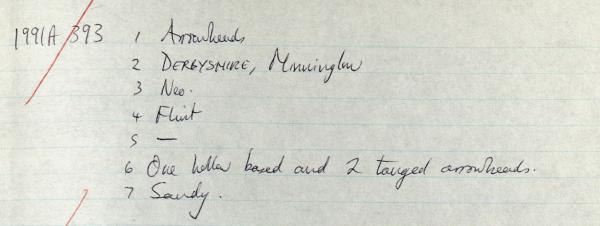 1991A 393 1 Arrowheads
2 DERBYSHIRE, Minninglow
3 Neo.
4 Flint
5 —
6 One hollow based and 2 tanged arrowheads.
7 Sandy.